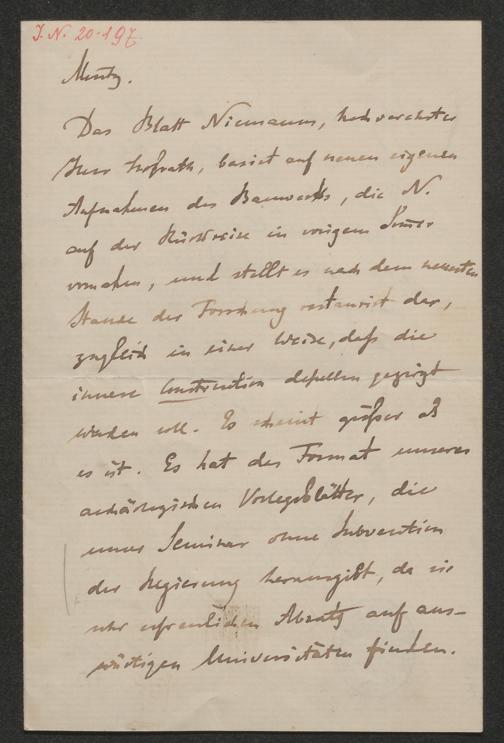 J. N. 20.197
Das Blatt Niemanns, hochverehrter
Herr Hofrath, basiert auf neuen eigenen
Aufnahmen des Bauwerks, die N.
auf der Rückreise im vorigen
und stellt es nach dem neuesten
Stande der Forschung restaurirt dar,
zugleich in einer Weise, daß die
innere Construction desselben gezeigt
werden soll. Es scheint größer als
es ist. Es hat das Format unserer
archäologischen Vorlegeblätter, die
unser Seminar ohne Subvention
der Regierung herausgibt, da sie
sehr erfreulichen Absatz auf aus-
wärtigen Universitäten finden.